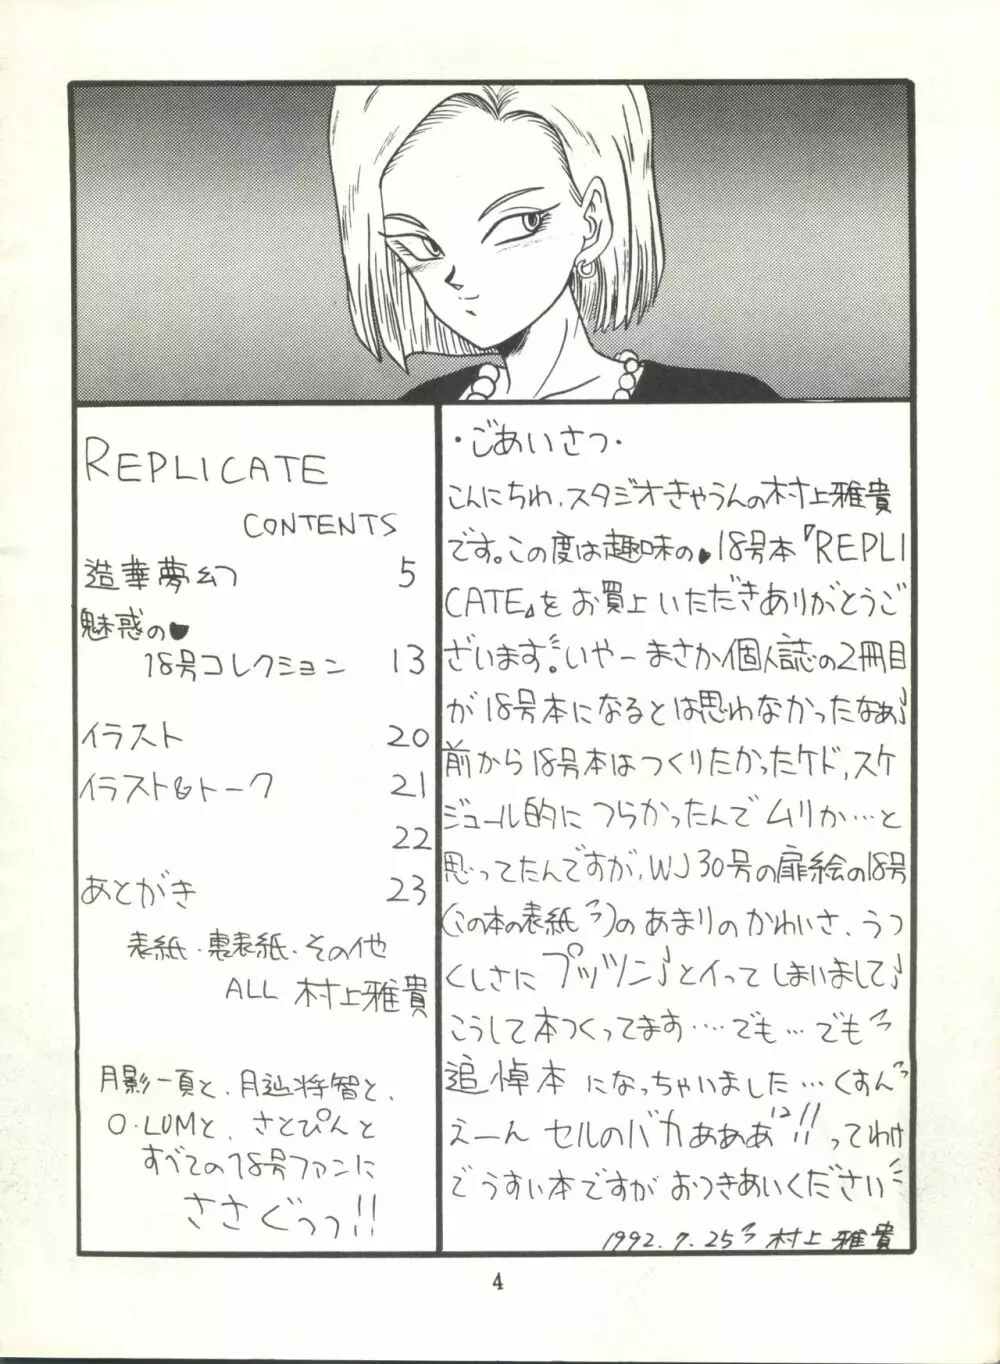 REPLICATE
CONTENTS
造華夢幻 5
魅惑の♥
18号コレクション 13
イラスト 20
イラスト&トーク 21
22
あとがき 23
表紙・裏表紙・その他
ALL 村上雅貴
月影一頁と、月辿将智と、
O・LUMと、さとぴんと
すべての18号ファンに
ささぐっっ!!
・ごあいさつ・
こんにちわ、スタジオきゃうんの村上雅貴
です。この度は趣味の♥18号本『REPLI
CATE』をお買上いただきありがとうご
ざいます。いやーまさか個人誌の2冊目
が18号本になるとは思わなかったなぁ♪
前から18号本はつくりたかったケド、スケ
ジュール的につらかったんでムリか…と
思ってたんですが、WJ30号の扉絵の18号
(この本の表紙ね)のあまりのかわいさ、うつ
くしさにプッツン♪とイってしまいまして♪
こうして本つくってます‥‥でも…でも
追悼本になっちゃいました…くすん
えーんセルのバカぁぁぁ!!ってわけ
でうすい本ですがおつきあいください
1992.7.25 村上雅貴
4